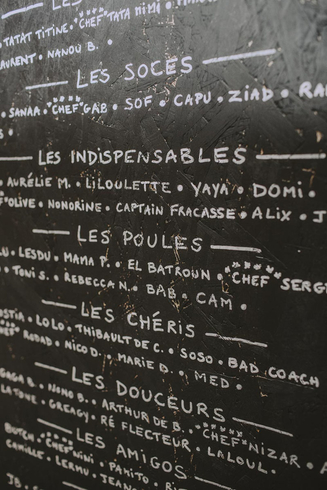 LES
TATAT TITINE • *CHEF* TATA NINI •
LAURENT • NANOU B. •
LES SOCES
SANAA • *CHEF* GAB • SOF • CAPU • ZIAD •
LES INDISPENSABLES
• AURÉLIE M. • LILOULETTE • YAYA • DOMI •
F'OLIVE • HONORINE • CAPTAIN FRACASSE • ALIX •
LES POULES
LU • LESDU • MAMA P. • EL BATROUN • *CHEF* SERGI
• TONI S. • REBECCA N. • BAB • CAM •
LES CHÉRIS
• LOLO • THIBAULT DE C. • SOSO • BAD COACH
*CHEF* • NICO D. • MARIE D. • MED •
LES DOUCEURS
GAGA B. • NONO B. • ARTHUR DE B. • *CHEF* NIZAR •
LA TONE • GREAGY • RÉ FLECTEUR • LALOUL •
LES AMIGOS
BUTCH • *CHEF* NINI • PAHITO •
CAMILLE • LERMU •
JB